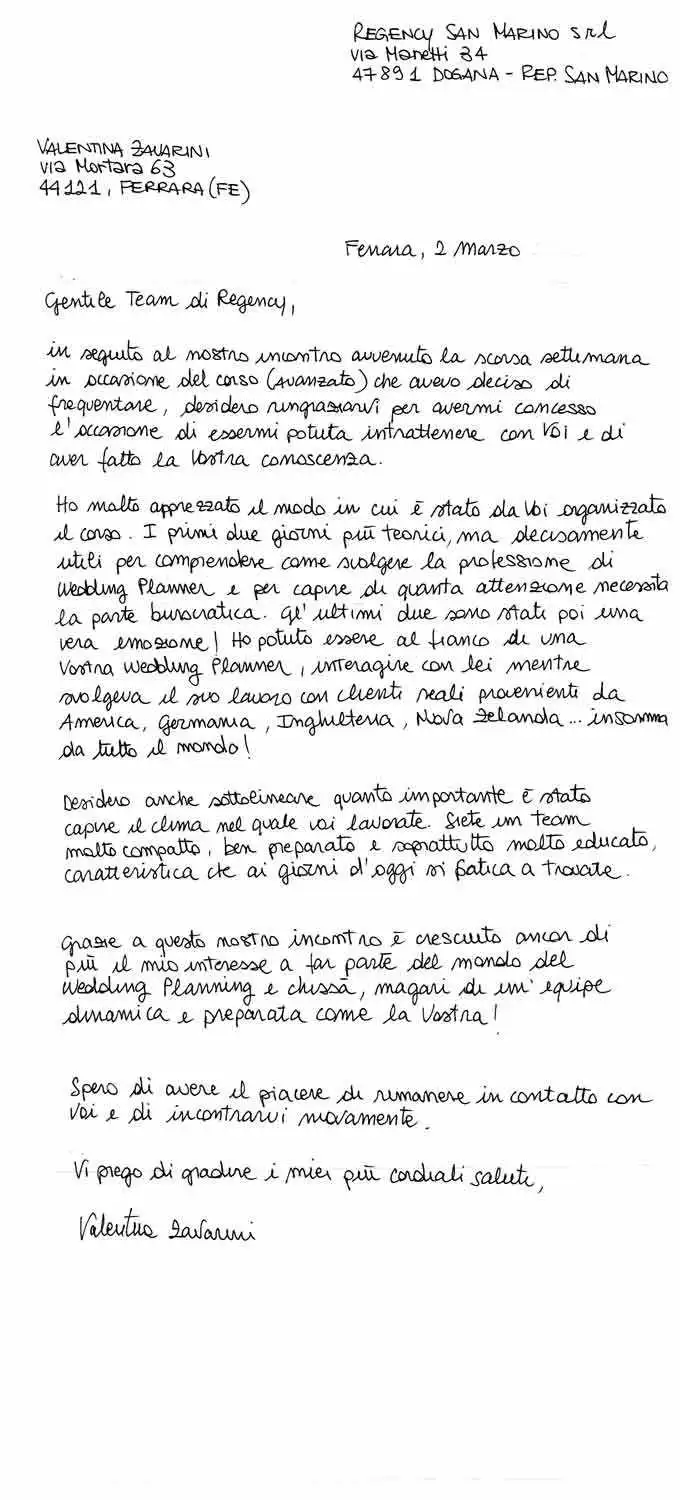 REGENCY SAN MARINO srl
via Manetti 34
47891 DOGANA - REP. SAN MARINO
VALENTINA ZAVARINI
via Mortara 63
44121, FERRARA (FE)
Ferrara, 2 Marzo
Gentile Team di Regency,
in seguito al nostro incontro avvenuto la scorsa settimana
in occasione del corso (avanzato) che avevo deciso di
frequentare, desidero ringraziarvi per avermi concesso
l'occasione di essermi potuta intrattenere con Voi e di
aver fatto la Vostra conoscenza.
Ho molto apprezzato il modo in cui è stato da Voi organizzato
il corso. I primi due giorni più teorici, ma decisamente
utili per comprendere come svolgere la professione di
Wedding Planner e per capire di quanta attenzione necessita
la parte burocratica. Gl'ultimi due sono stati poi una
vera emozione! Ho potuto essere al fianco di una
Vostra Wedding Planner, interagire con lei mentre
svolgeva il suo lavoro con clienti reali provenienti da
America, Germania, Inghilterra, Nova Zelanda... insomma
da tutto il mondo!
Desidero anche sottolineare quanto importante è stato
capire il clima nel quale voi lavorate. Siete un team
molto compatto, ben preparato e soprattutto molto educato,
caratteristica che ai giorni d'oggi si fatica a trovare.
Grazie a questo nostro incontro è cresciuto ancor di
più il mio interesse a far parte del mondo del
Wedding Planning e chissà, magari di un'equipe
dinamica e preparata come la Vostra!
Spero di avere il piacere di rimanere in contatto con
Voi e di incontrarvi nuovamente.
Vi prego di gradire i miei più cordiali saluti,
Valentina Zavarini